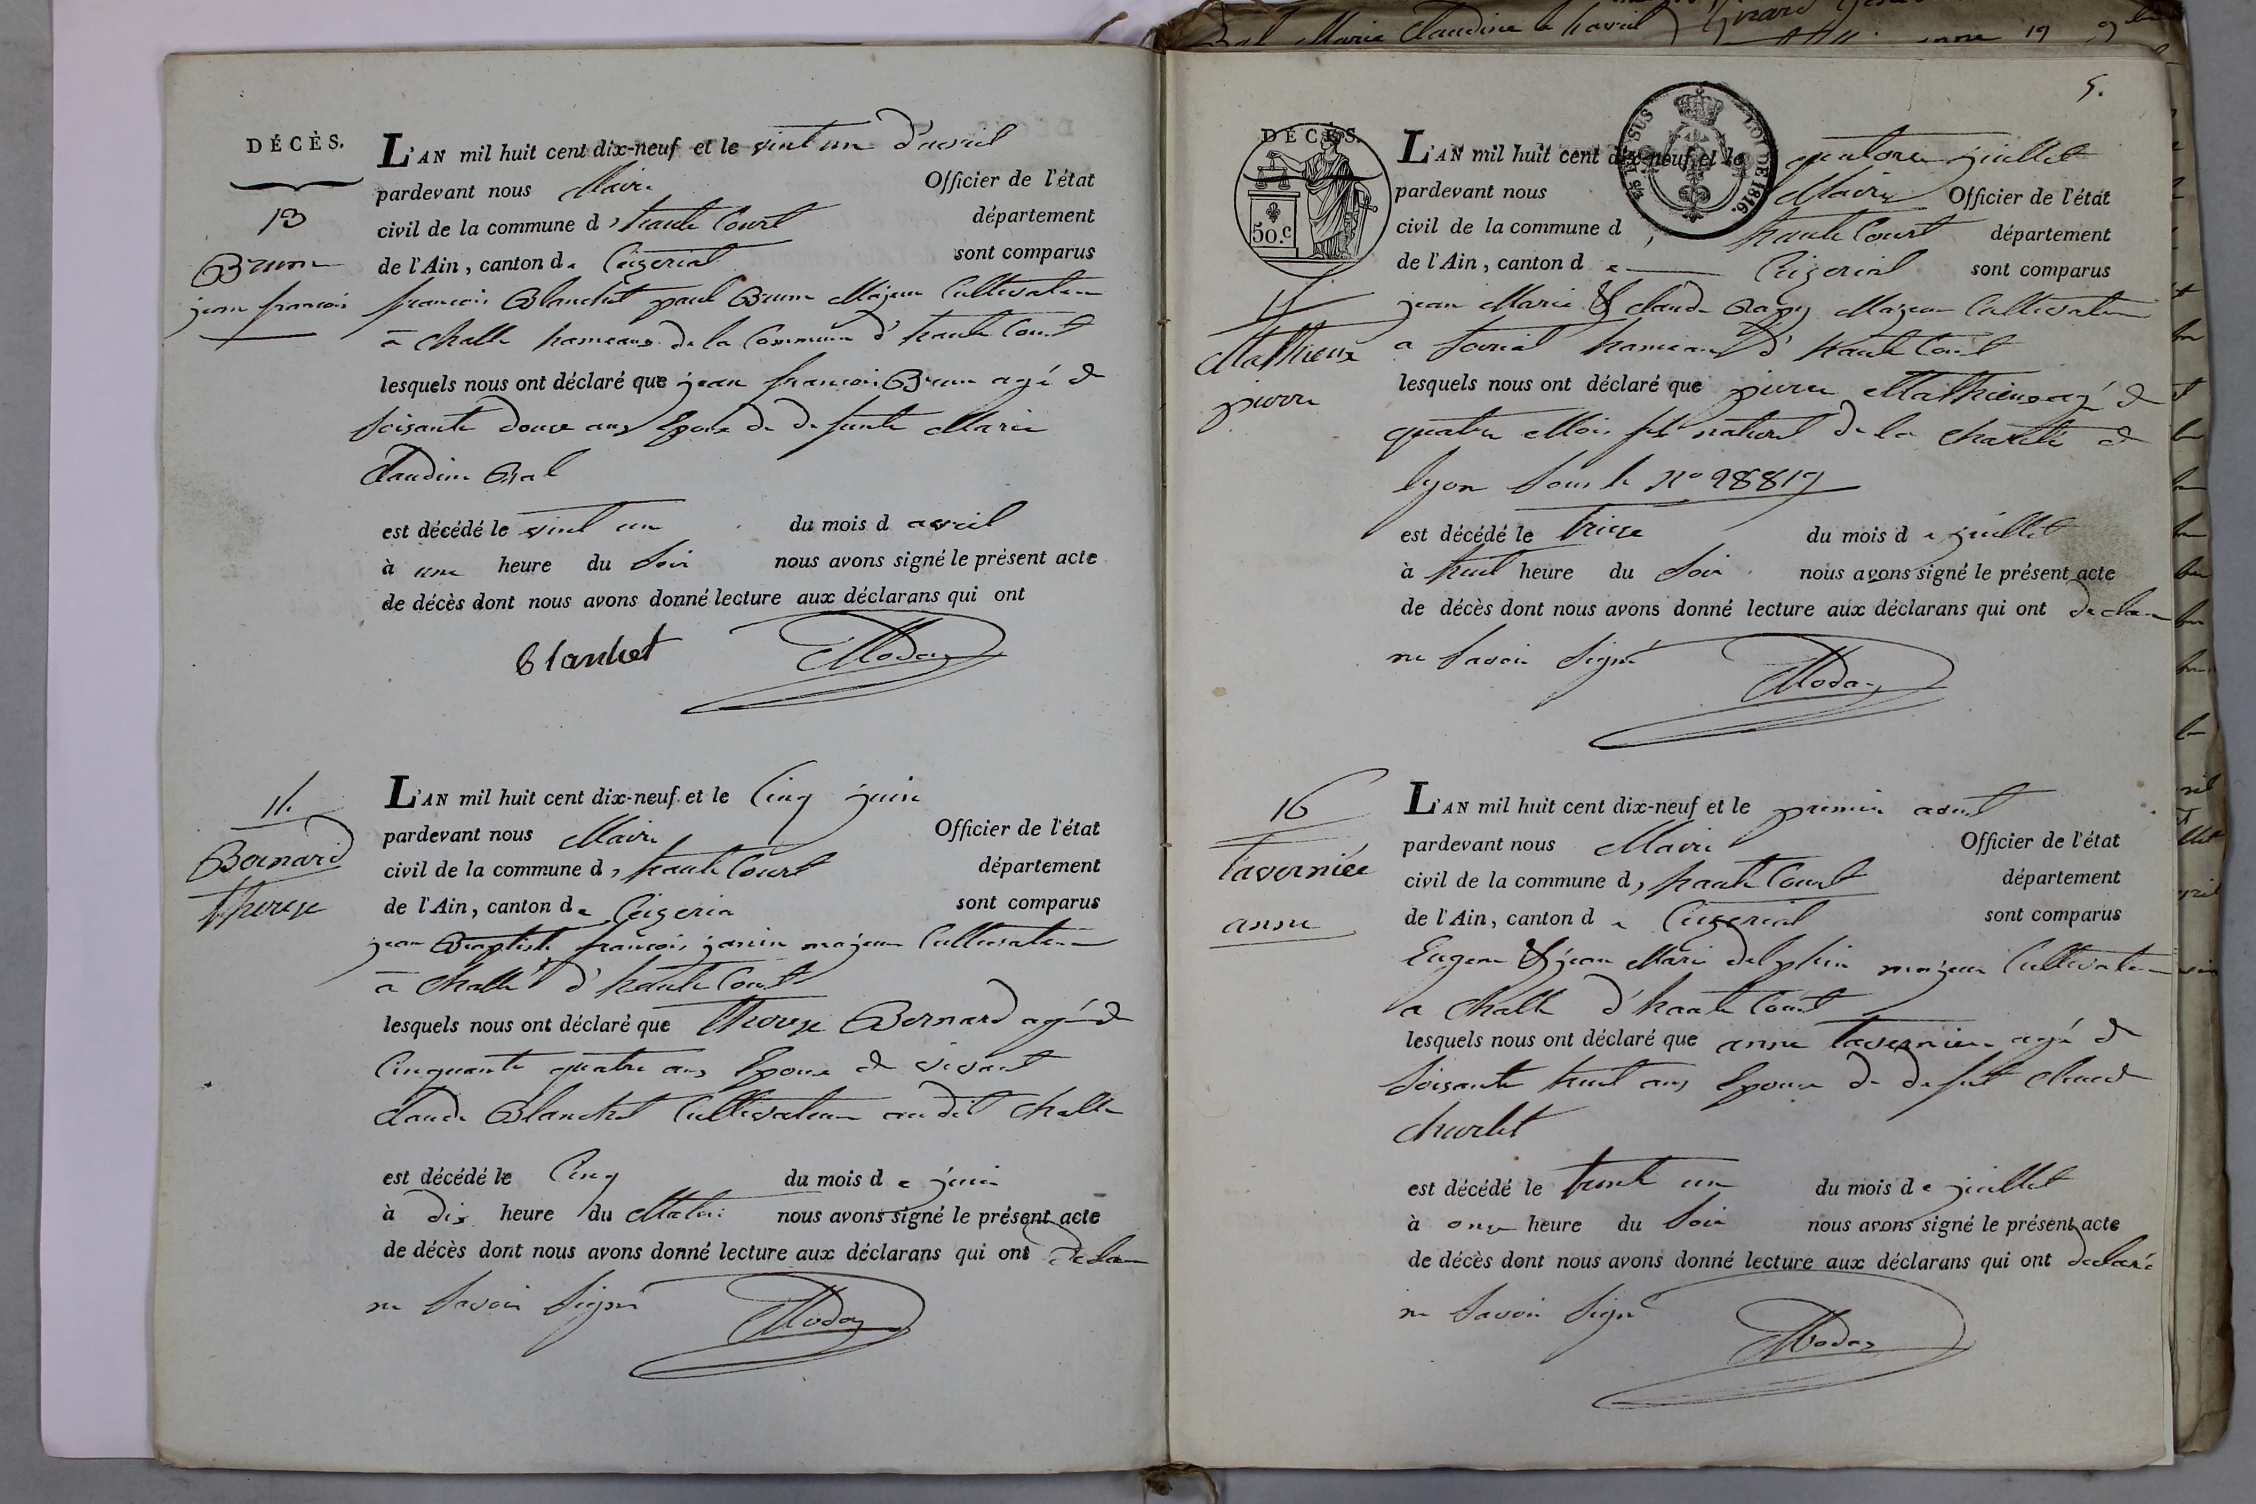 DÉCÈS.
13
Brun
jean françois
L'AN mil huit cent dix-neuf et le vint un d'avril
pardevant nous Maire Officier de l'état
civil de la commune d, haute Court département
de l'Ain, canton de Ceizeriat sont comparus
françois Blanchet paul Brun Majeur Cultivateur
a challe hameaux de la Commune d'haute Court
lesquels nous ont déclaré que jean françois Brun agé de
soisante douze ans Epoux de defunte Marie
Claudine Bal
est décédé le vint un du mois d avril
à une heure du soir nous avons signé le présent acte
de décès dont nous avons donné lecture aux déclarans qui ont
Blanchet Moday
14.
Bernard
therese
L'AN mil huit cent dix-neuf et le Cinq juin
pardevant nous Maire Officier de l'état
civil de la commune d, haute Court département
de l'Ain, canton de Ceizeria sont comparus
jean Baptiste françois janin majeur Cultivateur
a challe d'haute Court
lesquels nous ont déclaré que therese Bernard agé de
Cinquante quatre ans Epouse de vivant
Claude Blanchet Cultivateur audit challe
est décédé le Cinq du mois de juin
à dix heure du Matin nous avons signé le présent acte
de décès dont nous avons donné lecture aux déclarans qui ont declare
ne savoir signé Moday
5.
DÉCÈS.
50.c
EN SUS LOI DE 1816.
15.
Mathieux
pierre
L'AN mil huit cent dix-neuf et le quatorze juillet
pardevant nous Maire Officier de l'état
civil de la commune d, haute Court département
de l'Ain, canton de Ceizeriat sont comparus
jean Marie & claude Majeur Cultivateur
a hameaux d'haute Court
lesquels nous ont déclaré que pierre Mathieux agé de
quatre Mois fils naturel de la charité de
lyon sous le No 28817
est décédé le treize du mois de juillet
à huit heure du soir nous avons signé le présent acte
de décès dont nous avons donné lecture aux déclarans qui ont declare
ne savoir signé Moday
16
tavernier
anne
L'AN mil huit cent dix-neuf et le premier aout
pardevant nous Maire Officier de l'état
civil de la commune d, haute Court département
de l'Ain, canton de Ceizeriat sont comparus
Eugene & jean Marie delphin majeur Cultivateur
a challe d'haute Court
lesquels nous ont déclaré que anne tavernier agé de
soisante huit ans Epouse de defunt claude
churlet
est décédé le trente un du mois de juillet
à onze heure du soir nous avons signé le présent acte
de décès dont nous avons donné lecture aux déclarans qui ont declaré
ne savoir signé Moday